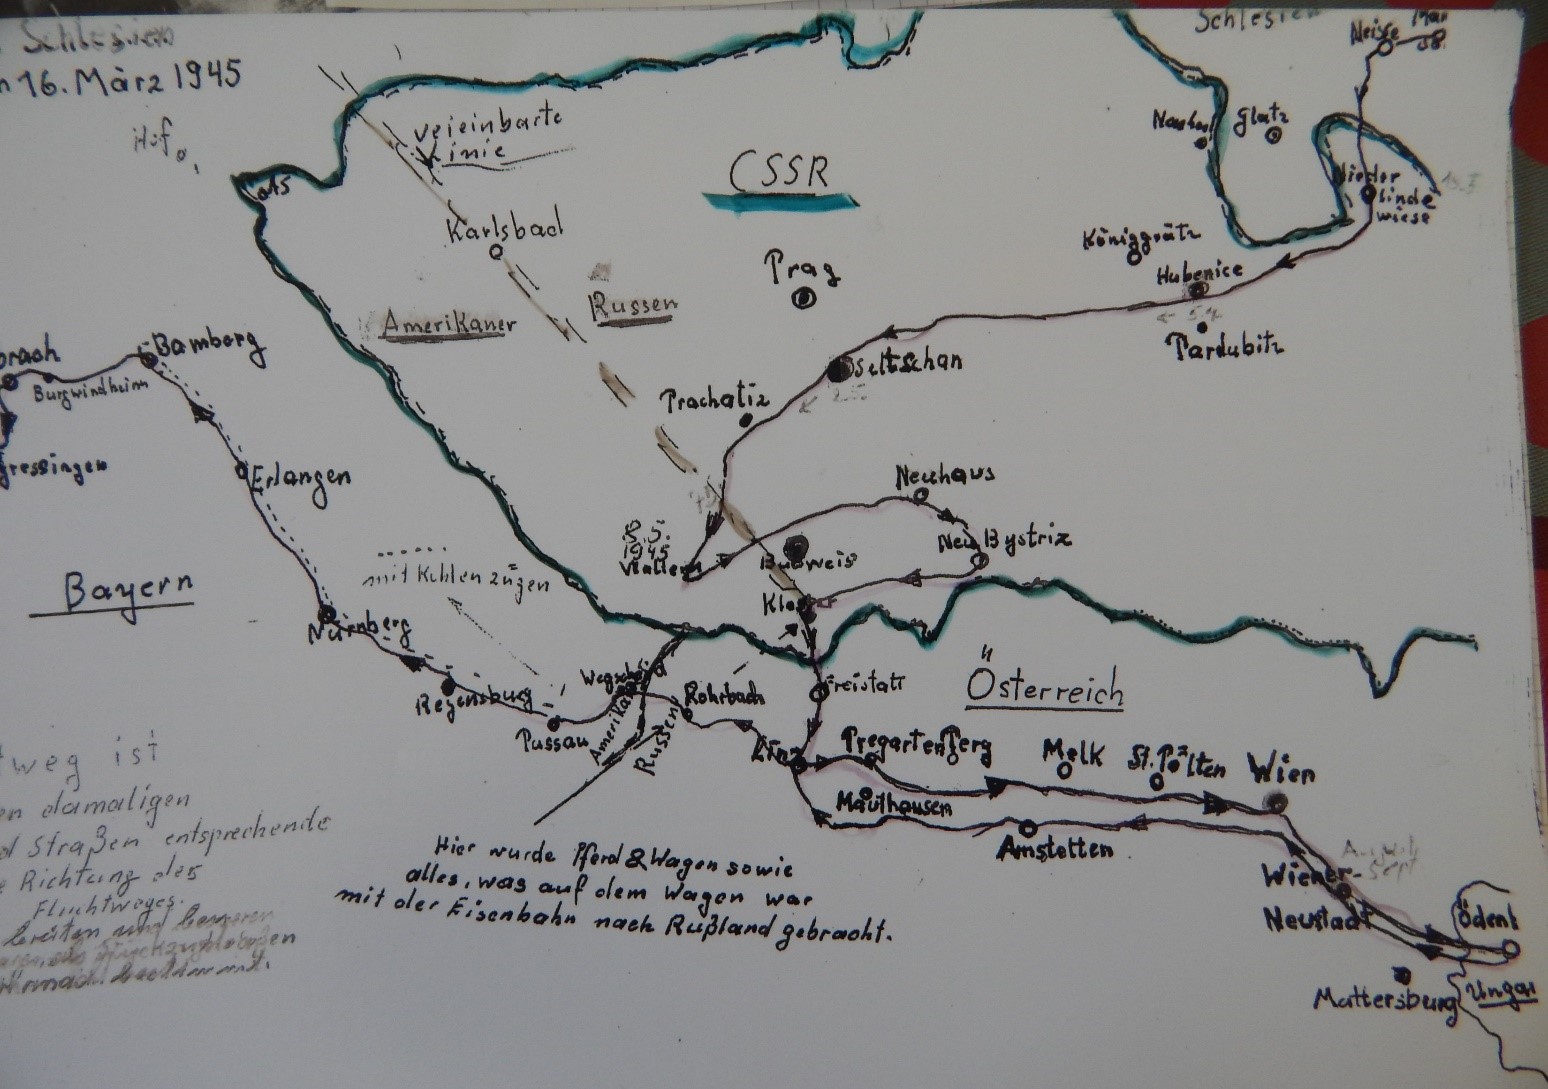 Schlesien
16. März 1945
Hof
Schlesien
Neiße
Glatz
As
vereinbarte
Linie
CSSR
Karlsbad
Prag
Königgrätz
Hubenice
Pardubitz
Nieder
linde
wiese
Amerikaner
Russen
Seltschan
Prachatiz
Bamberg
Burgwindheim
Erlangen
Neuhaus
Neu Bystriz
8.5.
1945
Wallern
Budweis
mit Kohlenzügen
Bayern
Nürnberg
Regensburg
Passau
Rohrbach
Russen
Freistatt
Österreich
Linz
Pregarten
Perg
Melk
St. Pölten
Wien
Mauthausen
Amstetten
Wiener-
Neustadt
Mattersburg
Ungar
Hier wurde Pferd & Wagen sowie
alles, was auf dem Wagen war
mit der Eisenbahn nach Rußland gebracht.
weg ist
damaligen
Straßen entsprechende
Richtung des
Fluchtweges.